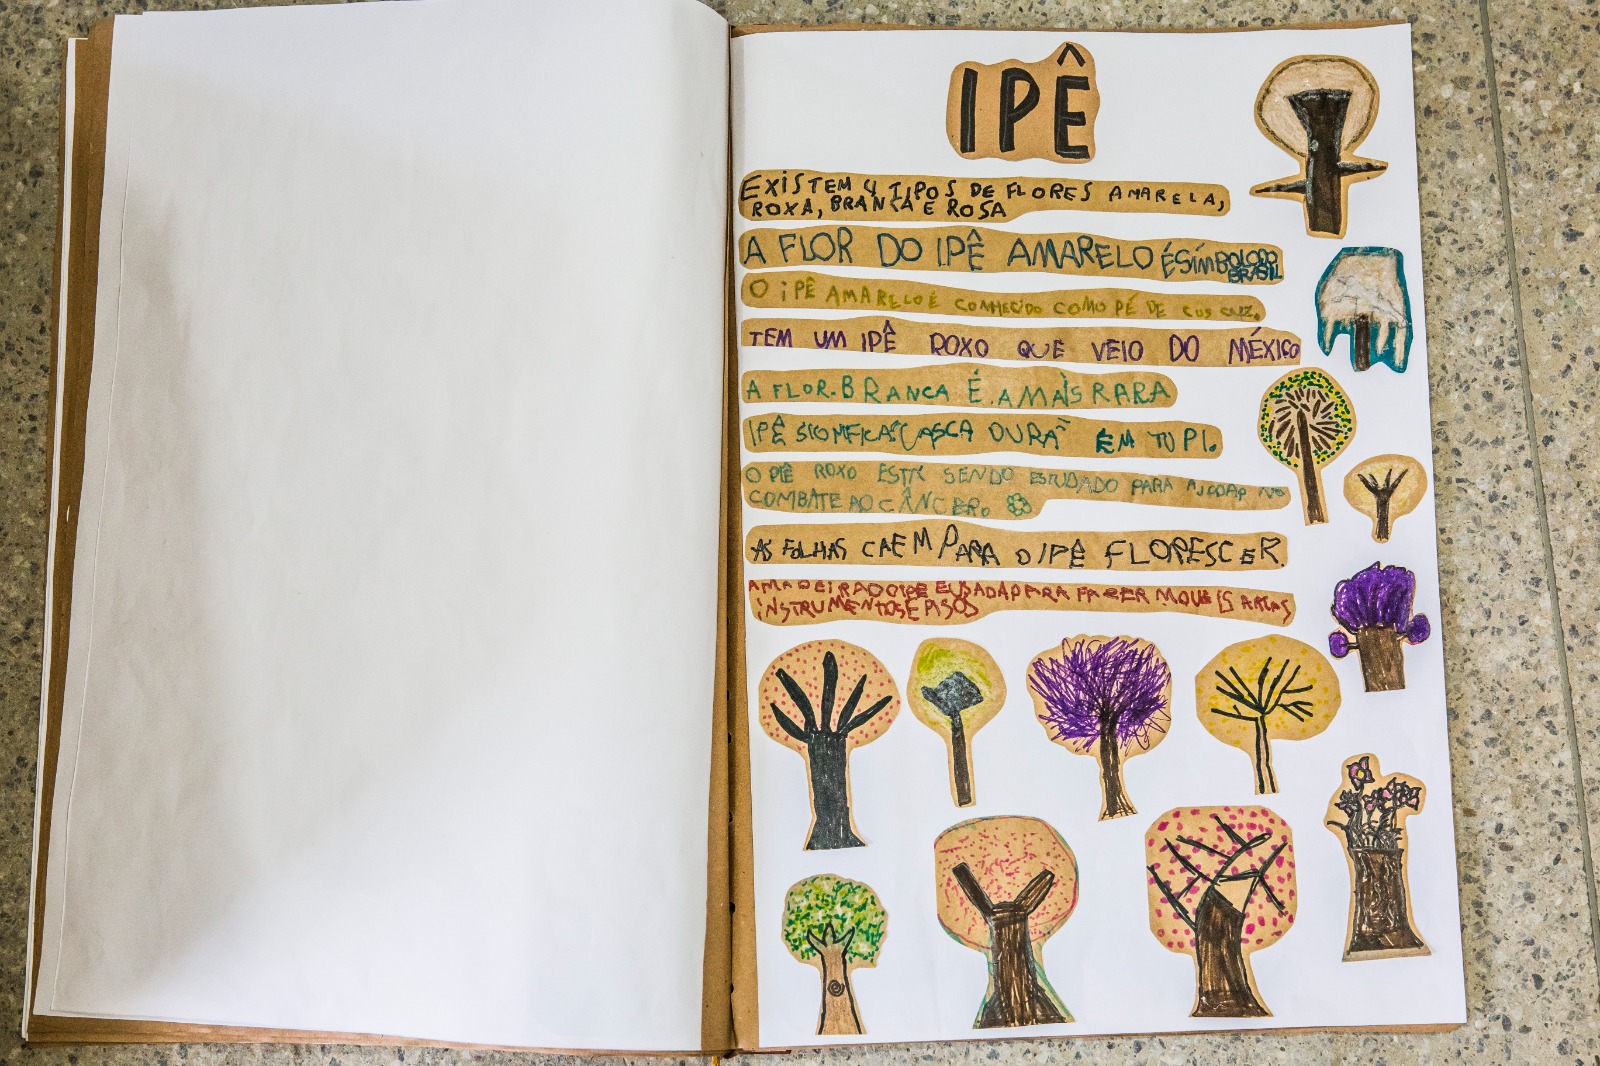 IPÊ
EXISTEM 4 TIPOS DE FLORES AMARELA,
ROXA, BRANCA E ROSA
A FLOR DO IPÊ AMARELO É SÍMBOLO DO
BRASIL
O IPÊ AMARELO É CONHECIDO COMO PÉ DE CUSCUZ.
TEM UM IPÊ ROXO QUE VEIO DO MÉXICO
A FLOR.BRANCA É.A MAÌS RARA
IPÊ SIGNIFICA "CASCA DURA" EM TUPI.
O PIÊ ROXO ESTÁ SENDO ESTUDADO PARA AJUDAR NO
COMBATE AO CÂNCER.
AS FOLHAS CAEM PARA O IPÊ FLORESCER.
A MADEIRA DO IPE E USADA PARA FAZER MOVEIS ARCAS
INSTRUMENTOS E PISOS